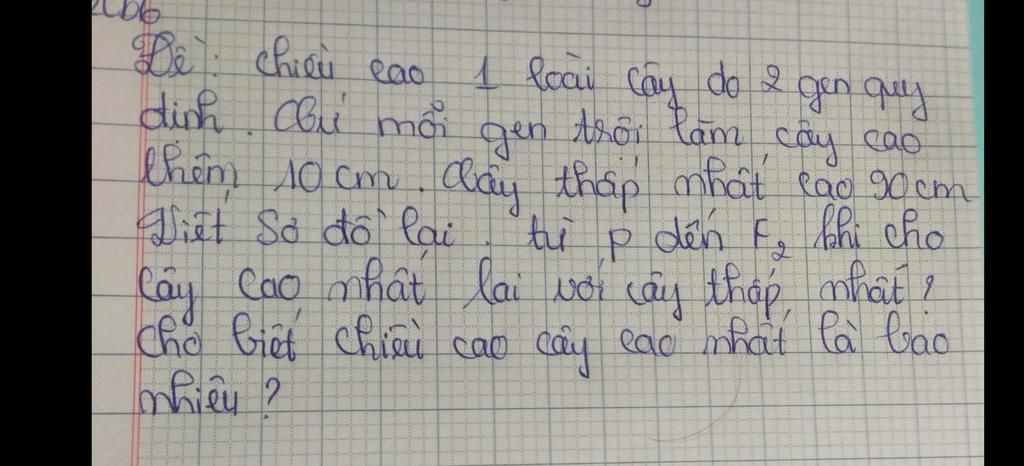 Đề: Chiều cao 1 loài cây do 2 gen quy
định. Cứ mỗi gen trội làm cây cao
thêm 10 cm. Cây thấp nhất cao 90 cm
Viết sơ đồ lai từ P đến F₂ khi cho
cây cao nhất lai với cây thấp nhất?
Cho biết chiều cao cây cao nhất là bao
nhiêu?